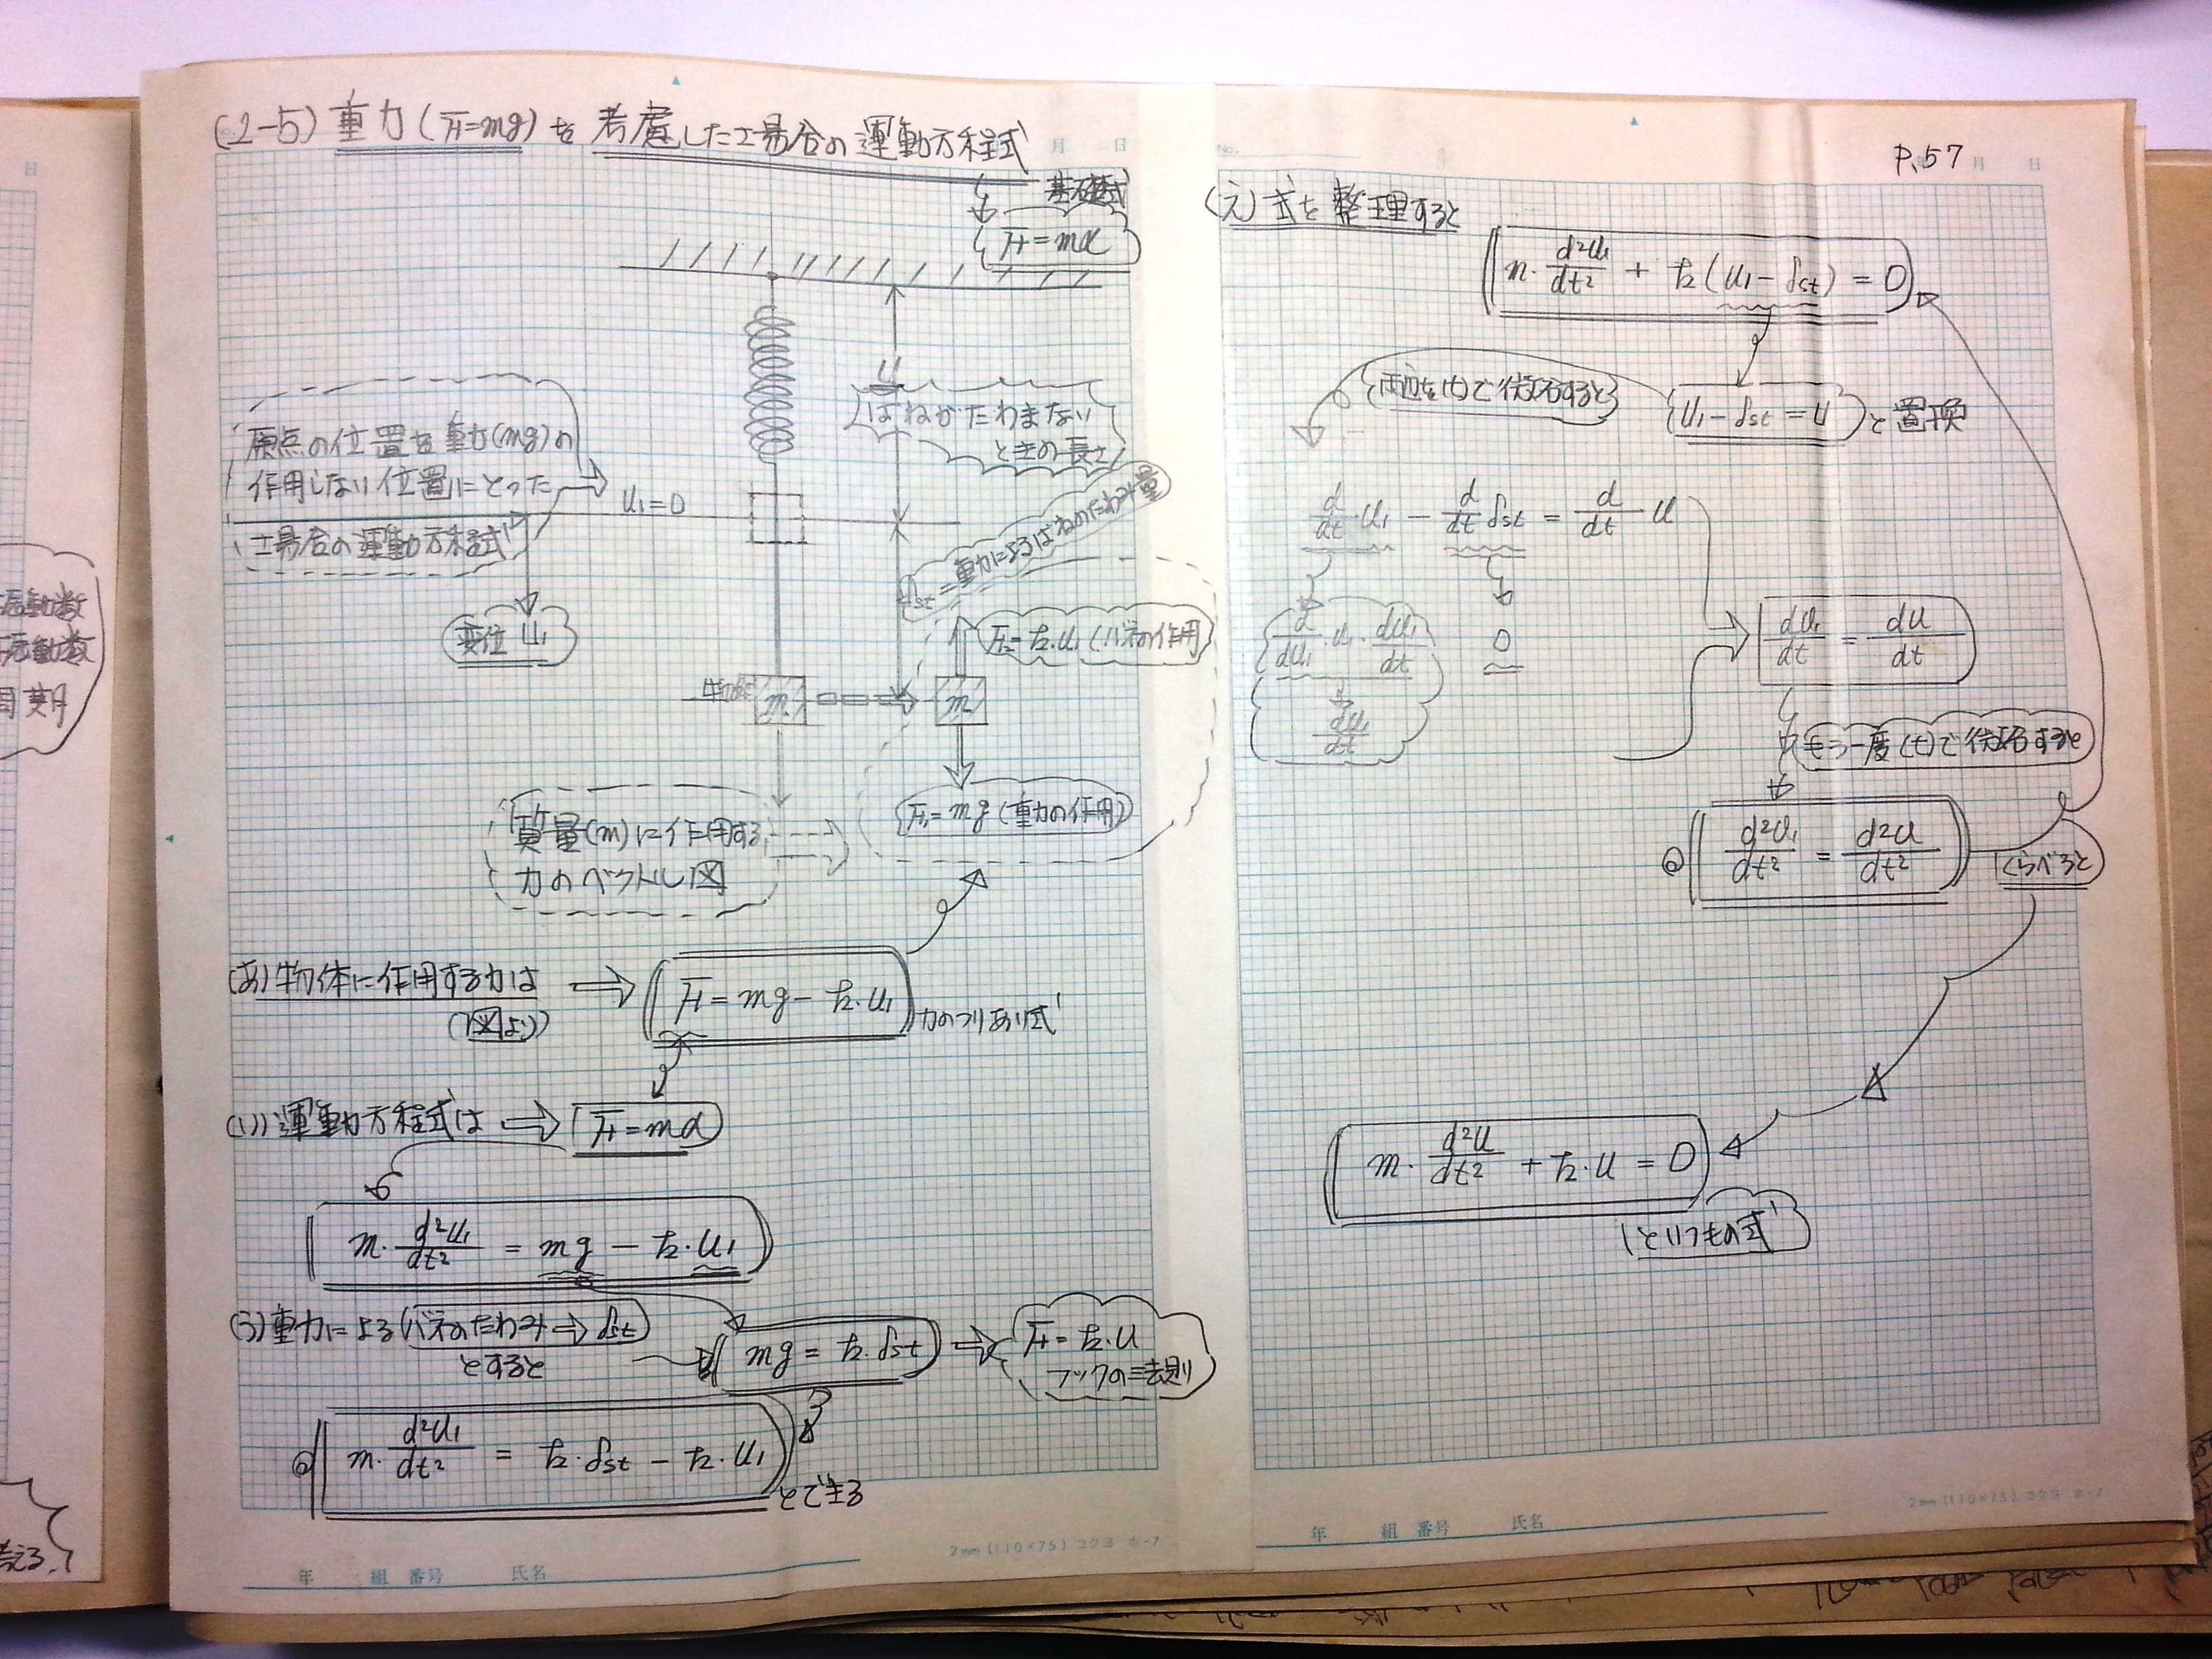 (2-5) 重力(F=mg)を考慮した場合の運動方程式
基礎式
F=mα
u
ばねがたわまない
ときの長さ
原点の位置を重力(mg)の
作用しない位置にとった
場合の運動方程式
u₁=0
δst=重力によるばねのたわみ量
変位 u₁
F=k・u₁(バネの作用
物体
m
m
F=mg(重力の作用)
質量(m)に作用する
力のベクトル図
(あ)物体に作用する力は
(図より)
F=mg-k・u₁
力のつりあい式
(い)運動方程式は
F=mα
m・d²u₁/dt² = mg - k・u₁
(う)重力によるバネのたわみ→δst
とすると
mg=k・δst
F=k・u
フックの法則
m・d²u₁/dt² = k・δst - k・u₁
とできる
年 組 番号 氏名
2mm(110×75)コクヨ ホ-7
P.57
No.
月 日
(え)式を整理すると
m・d²u₁/dt² + k(u₁-δst) = 0
両辺を(t)で微分すると
u₁-δst=u
と置換
d/dt・u₁ - d/dt δst = d/dt・u
d/du₁・u₁・du₁/dt
0
du₁/dt
du₁/dt = du/dt
もう一度(t)で微分すると
d²u₁/dt² = d²u/dt²
くらべると
m・d²u/dt² + k・u = 0
といつもの式
年 組 番号 氏名
2mm(110×75)コクヨ ホ-7
振動数
振動数
周期
考える。